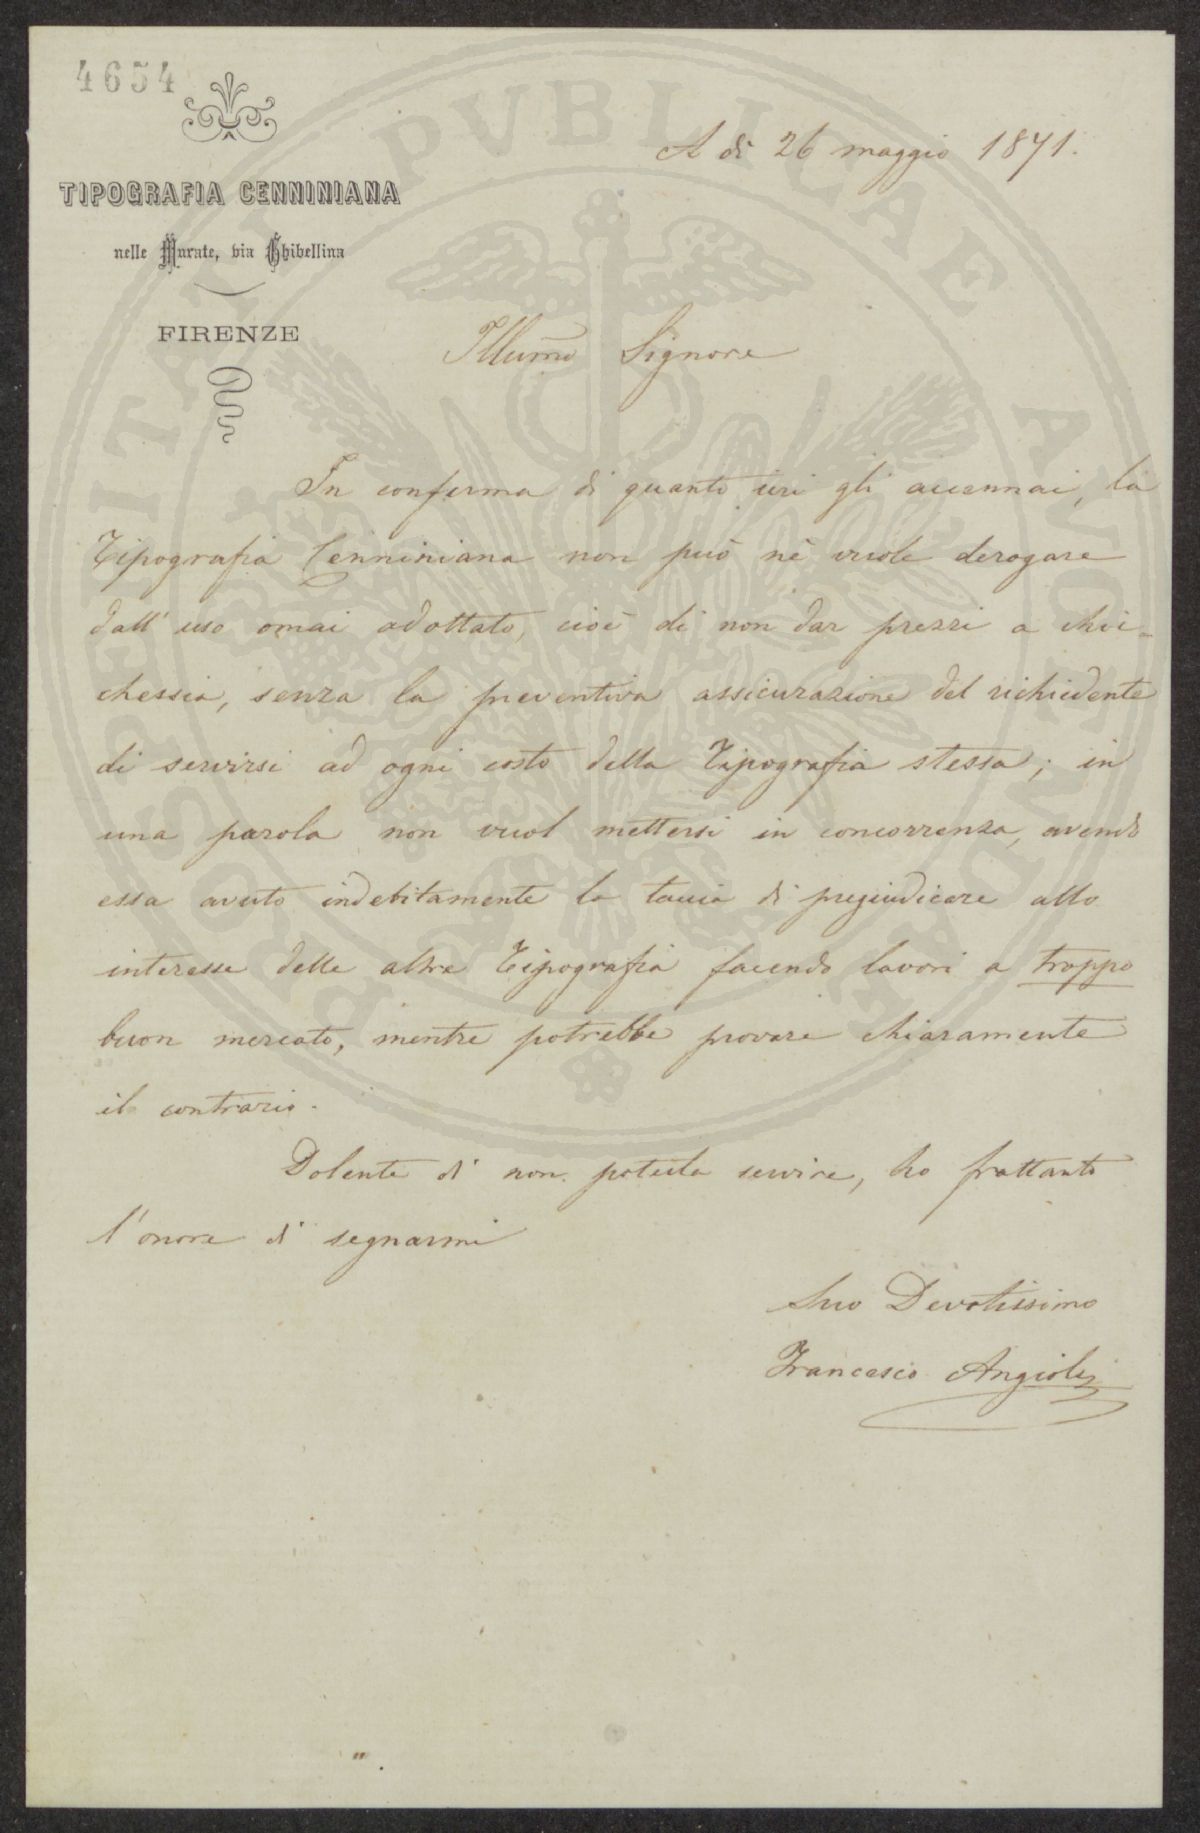 4654
TIPOGRAFIA CENNINIANA
nelle Murate, via Ghibellina
FIRENZE
A dì 26 maggio 1871.
Illumo Signore
In conferma di quanto ieri gli accennai, la
Tipografia Cenniniana non può nè vuole derogare
dall' uso omai adottato, cioè di non dar prezzi a chic=
chessia, senza la preventiva assicurazione del richiedente
di servirsi ad ogni costo della Tipografia stessa; in
una parola non vuol mettersi in concorrenza, avendo
essa avuto indebitamente la taccia di pregiudicare allo
interesse delle altre Tipografia facendo lavori a troppo
buon mercato, mentre potrebbe provare chiaramente
il contrario.
Dolente di non poterla servire, ho frattanto
l'onore di segnarmi
Suo Devotissimo
Francesco Angioli